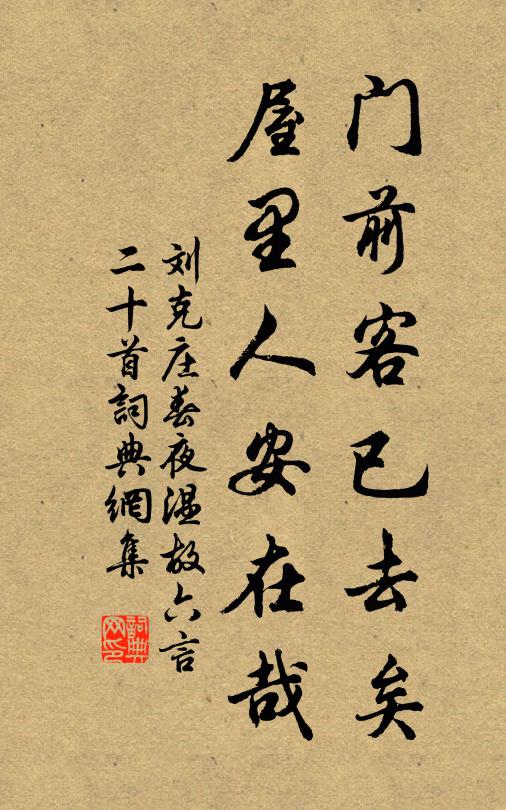 门前客已去矣
屋里人安在哉
刘克庄春夜温故六言
二十首詞典網集
詞典网印